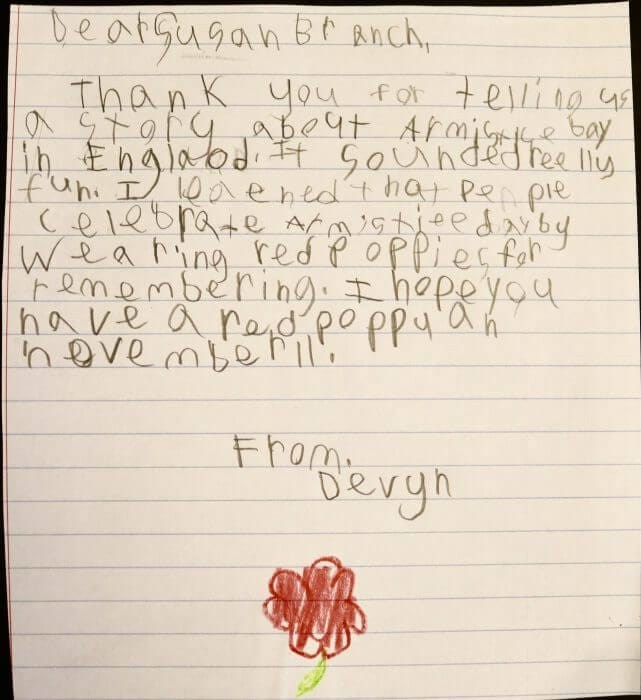 Dear Susan Branch,
Thank you for telling us
a story about Armistice bay
in Englabd. It sounded reelly
fun. I leaened that penple
celebrate Armisticedayby
wearing red poppies for
remembering. I hope you
have a red poppy an
november 11.
From,
Devyn